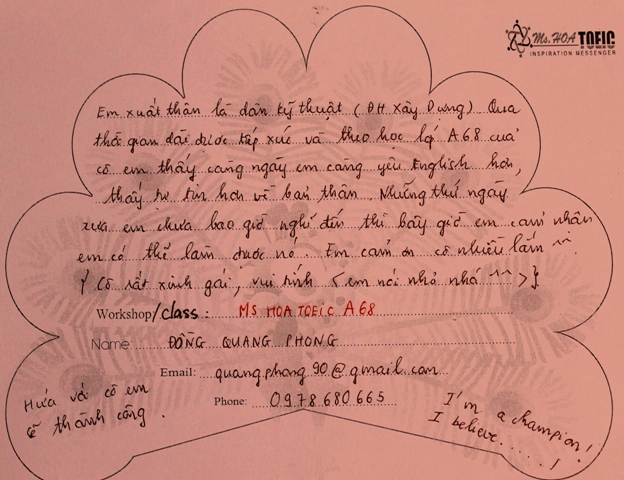 Ms. HOA TOEIC
INSPIRATION MESSENGER
Em xuất thân là dân kỹ thuật (ĐH Xây Dựng) Qua
thời gian dài được tiếp xúc và theo học lớp A68 của
cô em thấy càng ngày em càng yêu English hơn,
thấy tự tin hơn về bản thân. Những thứ ngày
xưa em chưa bao giờ nghĩ đến thì bây giờ em cảm nhận
em có thể làm được nó. Em cảm ơn cô nhiều lắm ^^
{ Cô rất xinh gái, vui tính < em nói nhỏ nhá ^^ >}
Workshop/class: MS HOA TOEIC A68
Name: ĐỒNG QUANG PHONG
Email: quangphong90@gmail.com
Phone: 0978680665
Hứa với cô em
sẽ thành công.
I'm a champion!
I believe......!